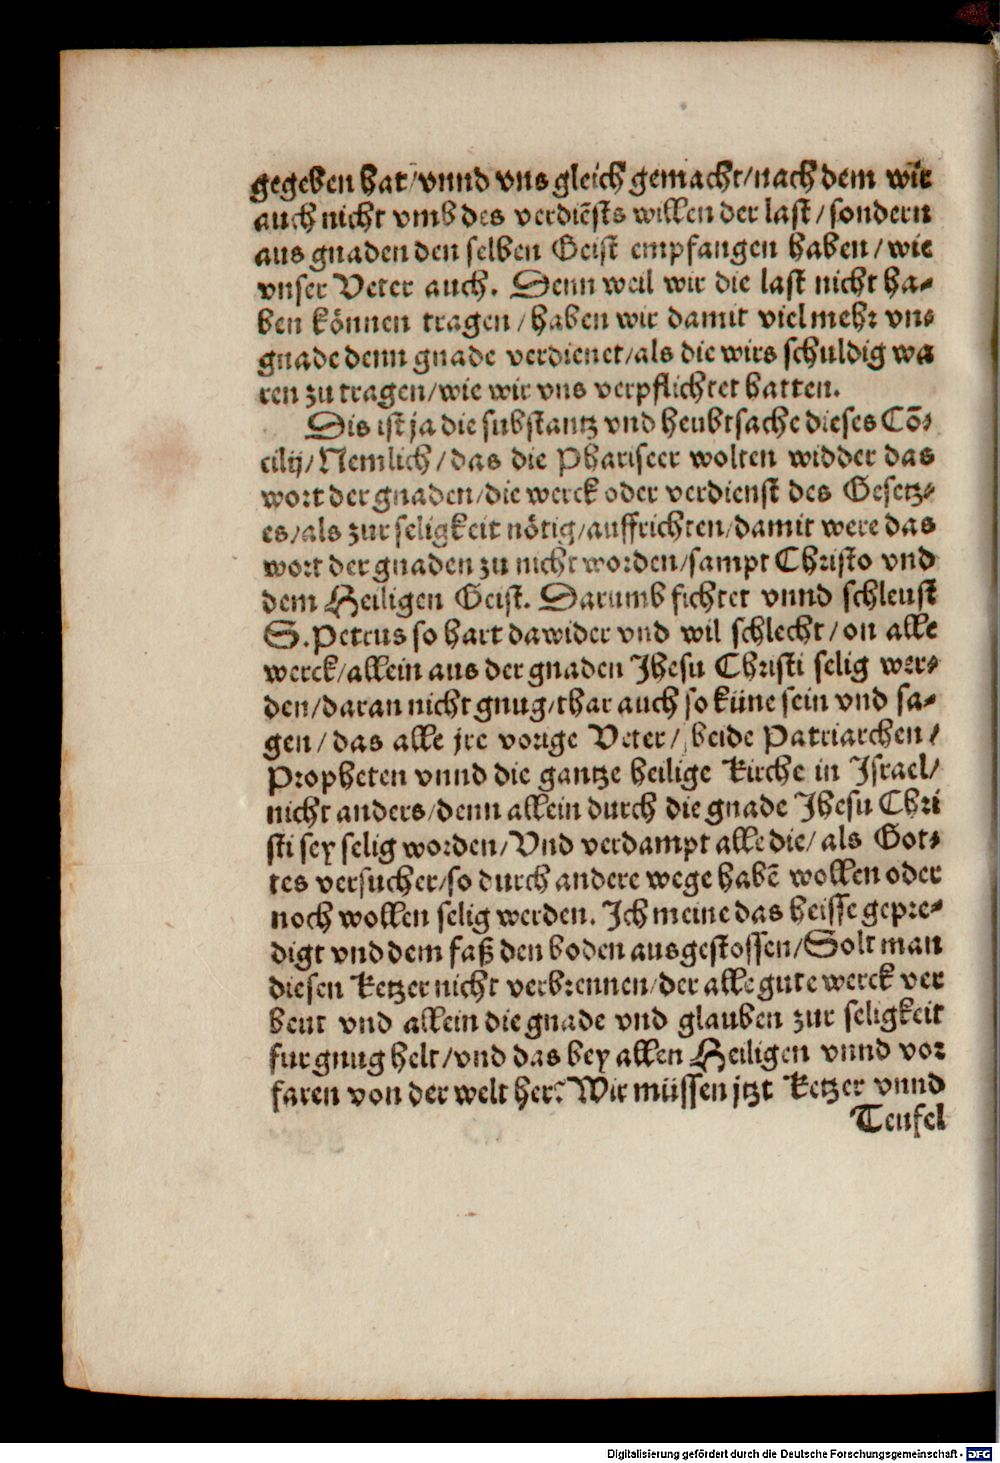 gegeben hat/vnnd vns gleich gemacht/nach dem wir
auch nicht vmb des verdiẽsts willen der last/sondern
aus gnaden den selben Geist empfangen haben/wie
vnser Veter auch. Denn weil wir die last nicht ha⸗
ben können tragen/haben wir damit viel mehr vn⸗
gnade denn gnade verdienet/als die wirs schuldig wa
ren zu tragen/wie wir vns verpflichtet hatten.
Dis ist ja die substantz vnd heubtsache dieses Cõ⸗
cilij/Nemlich/das die Phariseer wolten widder das
wort der gnaden/die werck oder verdienst des Gesetz⸗
es/als zur seligkeit nötig/auffrichten/damit were das
wort der gnaden zu nicht worden/sampt Christo vnd
dem Heiligen Geist. Darumb fichtet vnnd schleust
S. Petrus so hart dawider vnd wil schlecht/on alle
werck/allein aus der gnaden Jhesu Christi selig wer⸗
den/daran nicht gnug/thar auch so küne sein vnd sa⸗
gen/das alle jre vorige Veter/beide Patriarchen/
Propheten vnnd die gantze heilige Kirche in Israel/
nicht anders/denn allein durch die gnade Jhesu Chri
sti sey selig worden/Vnd verdampt alle die/als Got⸗
tes versucher/so durch andere wege habẽ wollen oder
noch wollen selig werden. Ich meine das heisse gepre⸗
digt vnd dem faß den boden ausgestossen/Solt man
diesen Ketzer nicht verbrennen/der alle gute werck ver
beut vnd allein die gnade vnd glauben zur seligkeit
fur gnug helt/vnd das bey allen Heiligen vnnd vor
faren von der welt her? Wir müssen jtzt Ketzer vnnd
Teufel
Digitalisierung gefördert durch die Deutsche Forschungsgemeinschaft - DFG